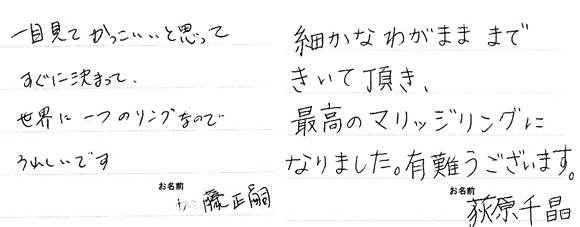 一目見て かっこいいと思って
すぐに決まって、
世界に 一つのリングなので
うれしいです
お名前
藤正嗣
細かな わがまま まで
きいて頂き、
最高のマリッジリングに
なりました。有難うございます。
お名前
荻原千晶